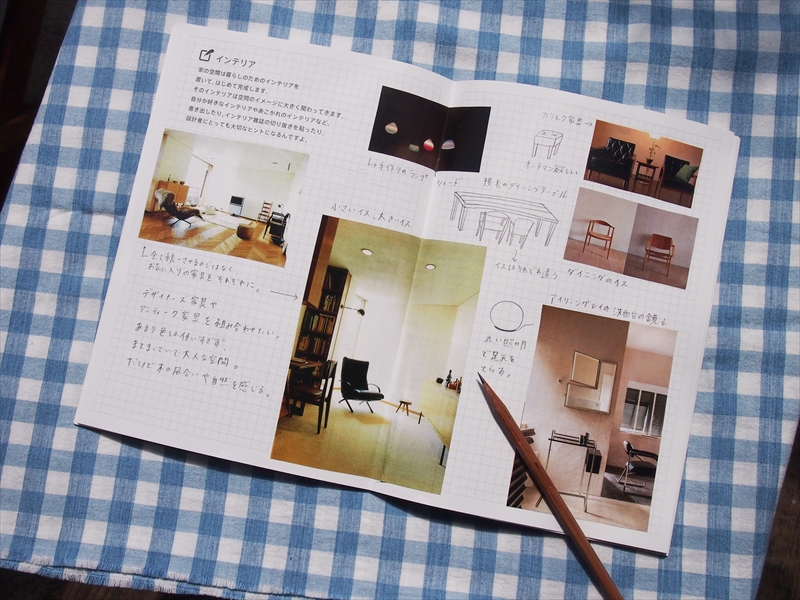 インテリア
家の空間は暮らしのためのインテリアを
置いて、はじめて完成します。
そのインテリアは空間のイメージに大きく関わってきます。
自分が好きなインテリアやあこがれのインテリアなど、
書き出したり、インテリア雑誌の切り抜きを貼ったり。
設計者にとっても大切なヒントになるんですよ。
全て統一させるのではなく、
お気に入りの家具をそれぞれに。
デザイナーズ家具や
アンティーク家具を組み合わせたい。
あまり色は使いすぎず
まとまっていて大人な空間。
だけど木の風合いや自然を感じる。
手作りのランプシェード
小さいイス、大きいイス
カリモク家具→
オットマン欲しい
横長のダイニングテーブル
イスはそれぞれ違う
ダイニングのイス
丸い照明
で足元を
てらす。
アイリーングレイの洗面台の鏡↓